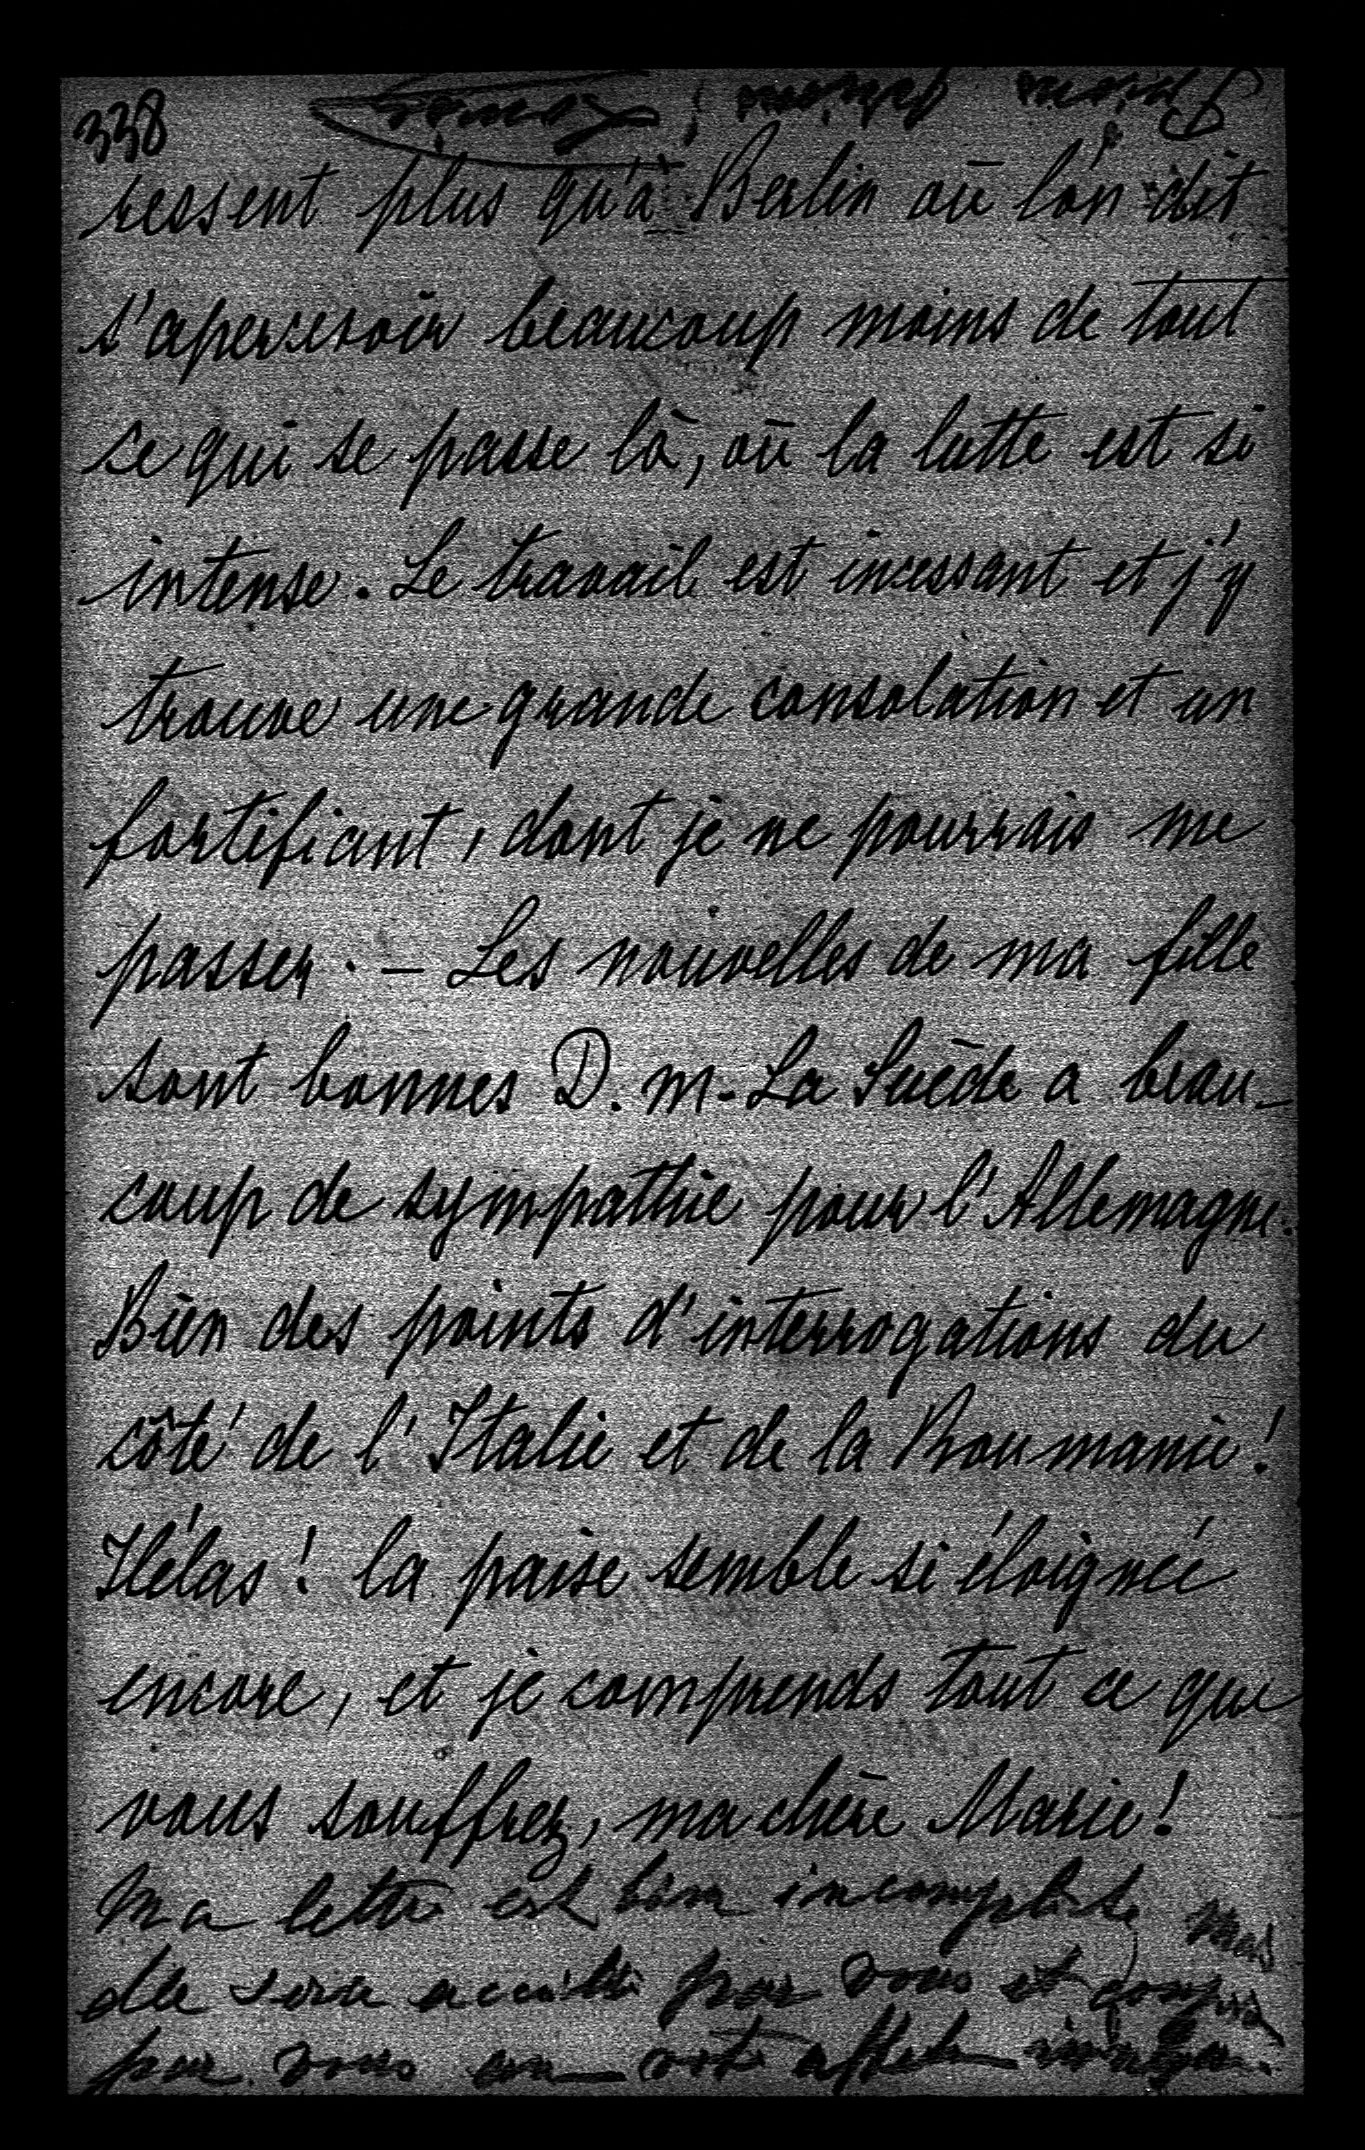 338
ressent plus qu'à Berlin où l'on dit
s'apercevoir beaucoup moins de tout
ce qui se passe là, où la lutte est si
intense. Le travail est incessant et j'y
trouve une grande consolation et un
fortifiant, dont je ne pourrais me
passer. – Les nouvelles de ma fille
sont bonnes D. m. La Suède a beau-
coup de sympathie pour l'Allemagne.
Bien des points d'interrogations du
côté de l'Italie et de la Roumanie!
Hélas! la paix semble si éloignée
encore, et je comprends tout ce que
vous souffrez, ma chère Marie!
Ma lettre est bien incomplète, mais
elle sera par vous et
par vous